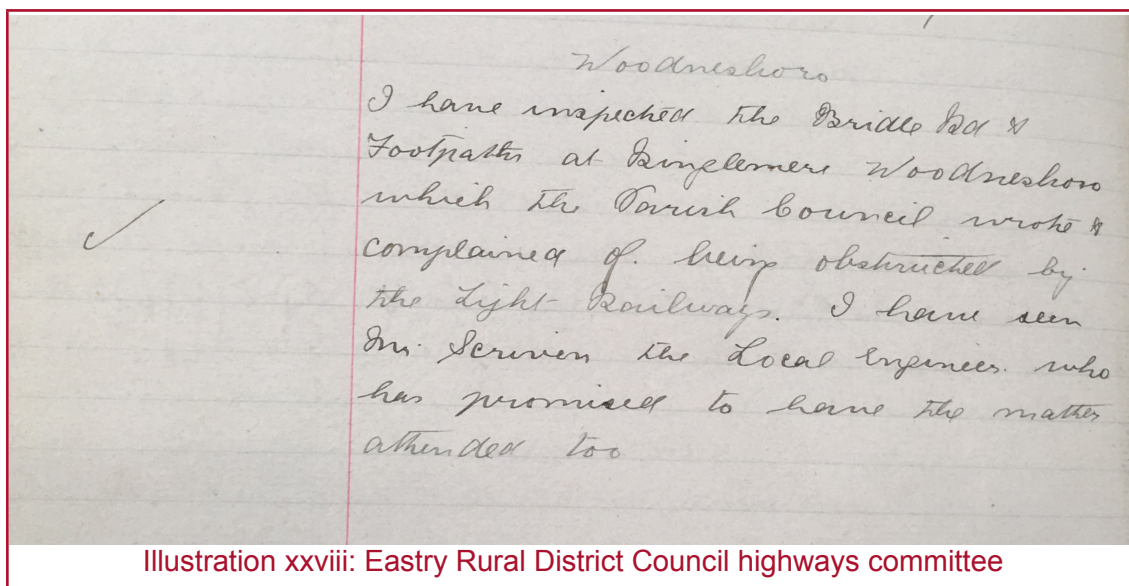 Woodnesboro
I have inspected the Bridle Rd &
Footpaths at Ringlemere Woodnesboro
which the Parish Council wrote &
complained of. being obstructed by
the Light Railways. I have seen
Mr. Scriven the Local Engineer. who
has promised to have the matter
attended too
Illustration xxviii: Eastry Rural District Council highways committee